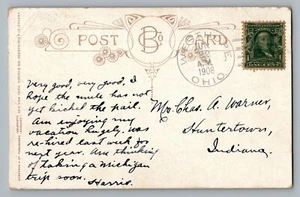 POST CARD
JUN
A.M.
1908
OHIO
Very good, very good, I
hope the mule has not
yet kicked the pail.
Am enjoying my
vacation hugely, was
re-hired last week for
next year. Am thinking
of taking a Michigan
trip soon.
Harris.
Mr. Chas. A. Warner,
Huntertown,
Indiana.